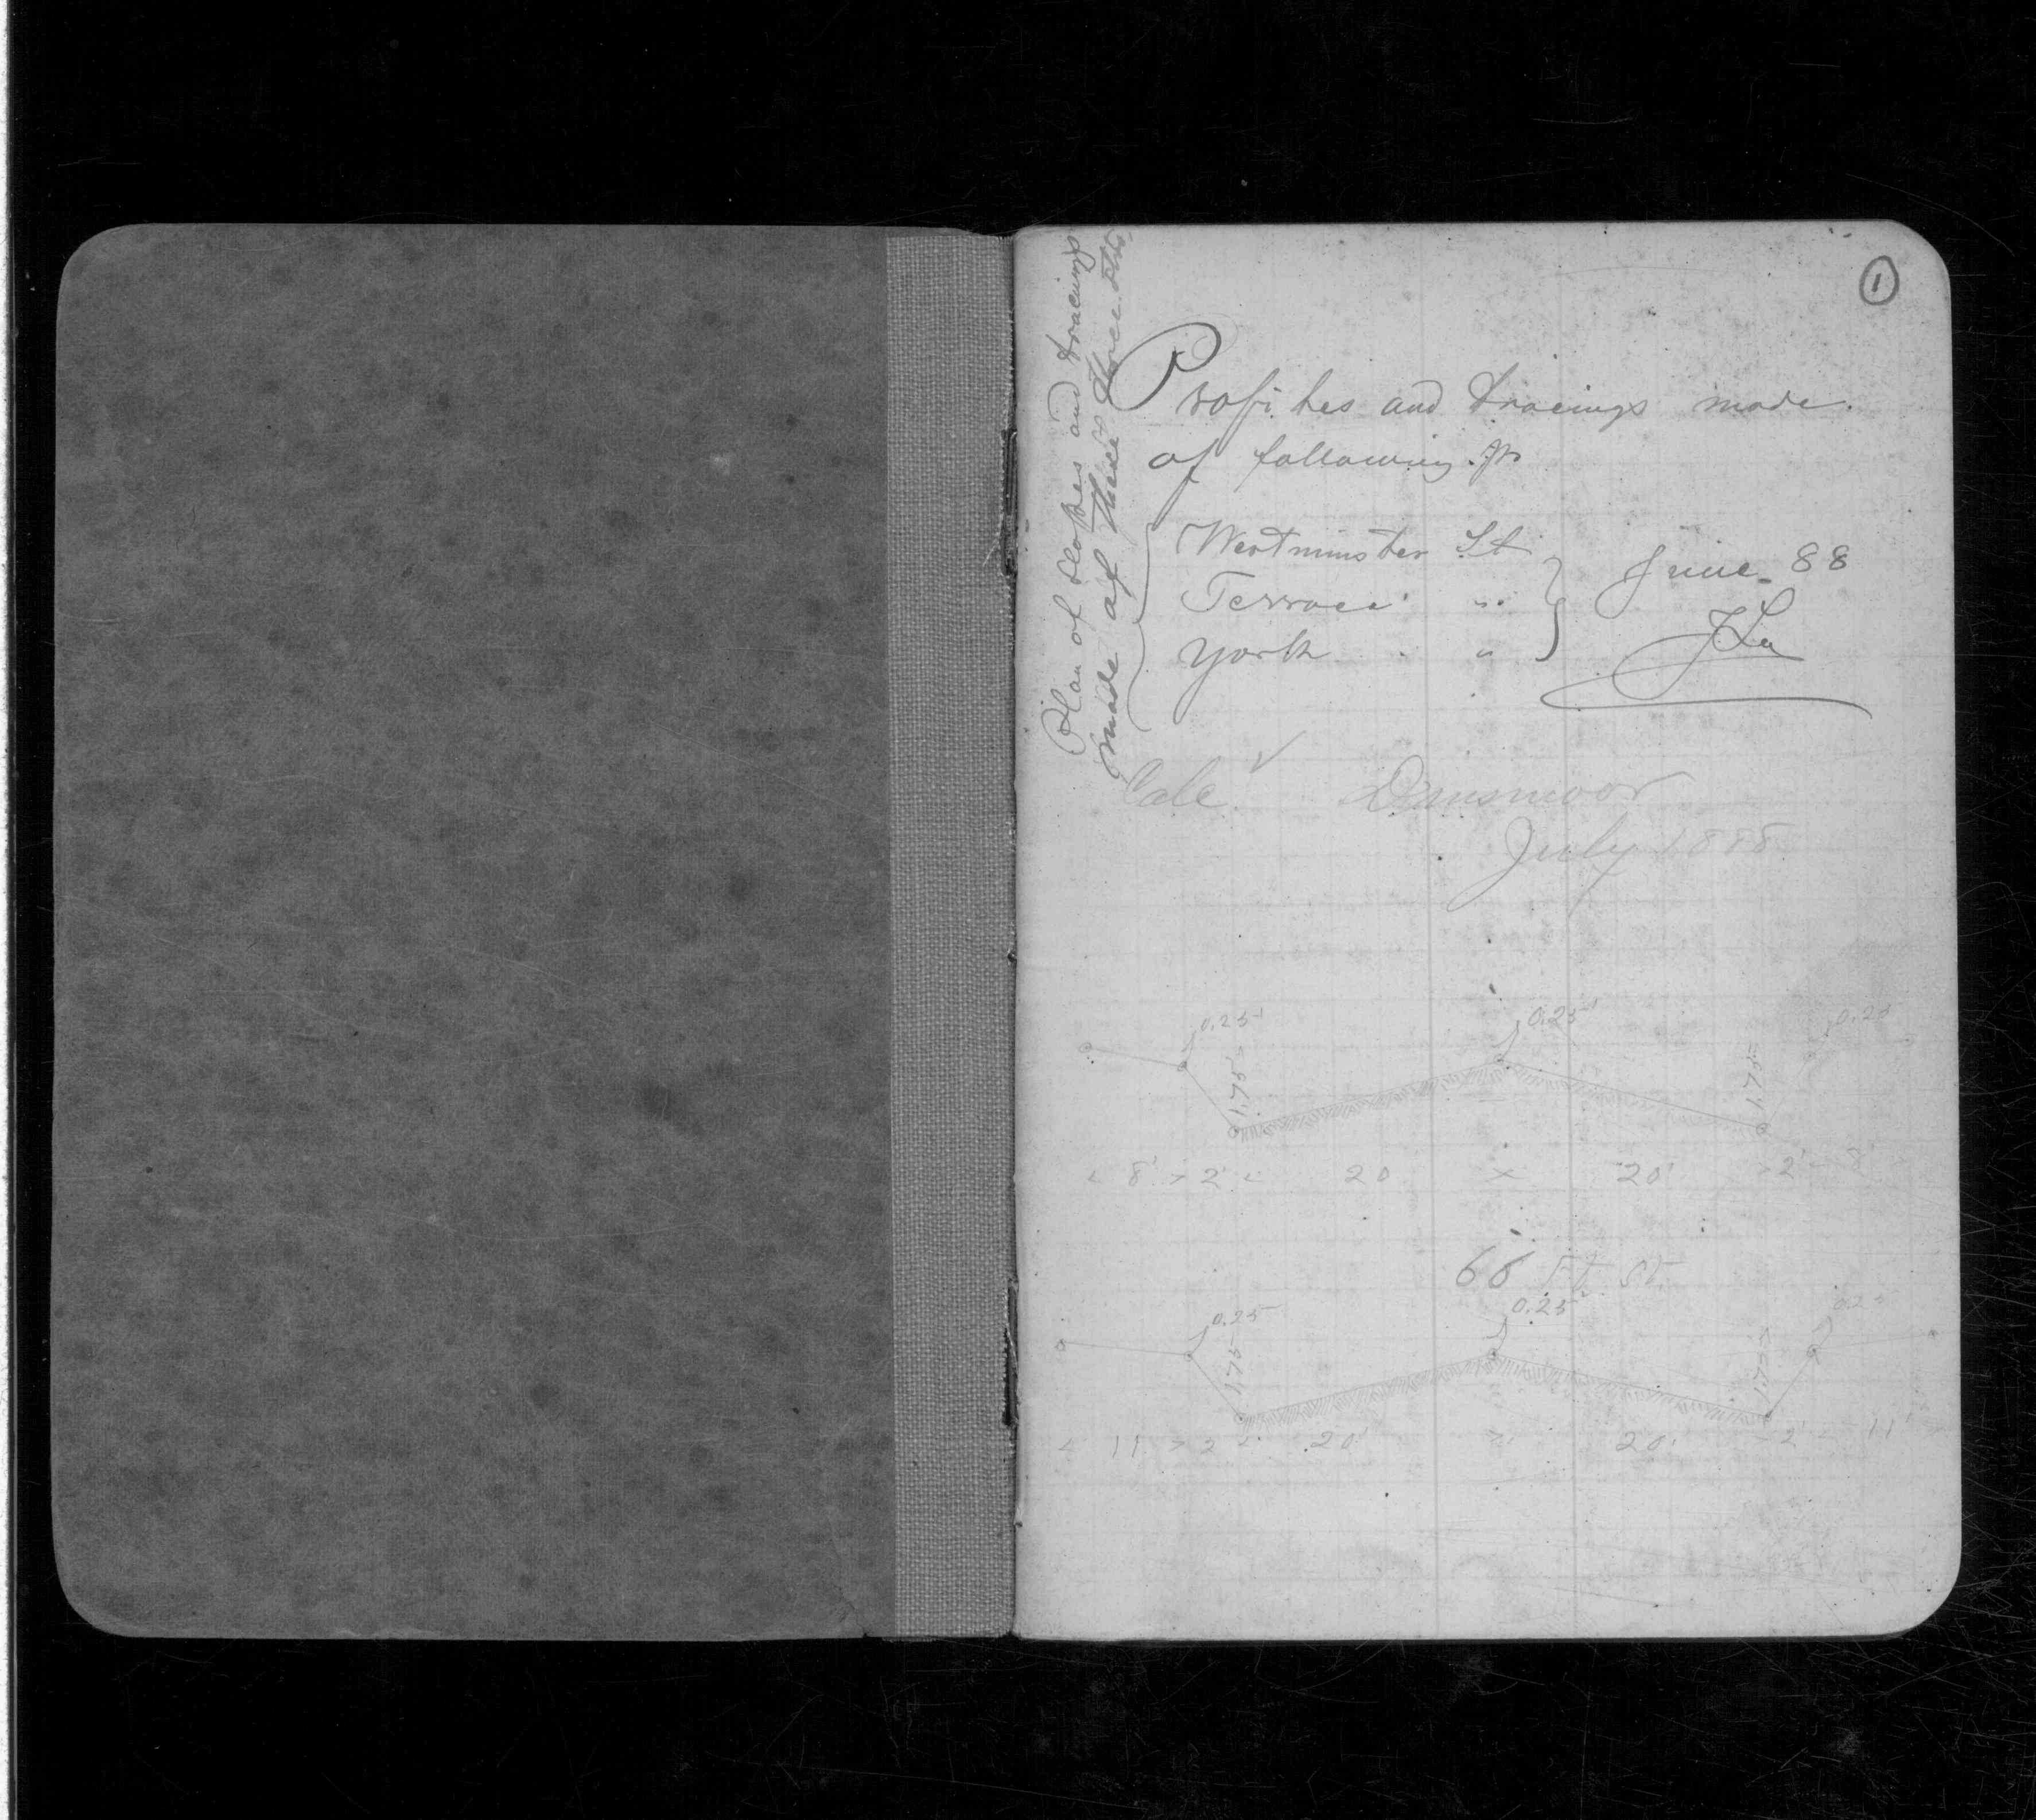 1
Plan of slopes and tracings
made of these three Sts
Profiles and tracings made.
of following
Westminster St
Terrace "
York "
June 88
Calc. ✓ Dunsmoor
July 1888
0.25' 0.25' 0.25
1.75 1.75
< 8' > 2' < 20 × 20' 2' 8'
66 FT ST.
0.25 0.25 0.25
1.75 1.75
< 11 > 2 < 20' > 20' 2' 11'